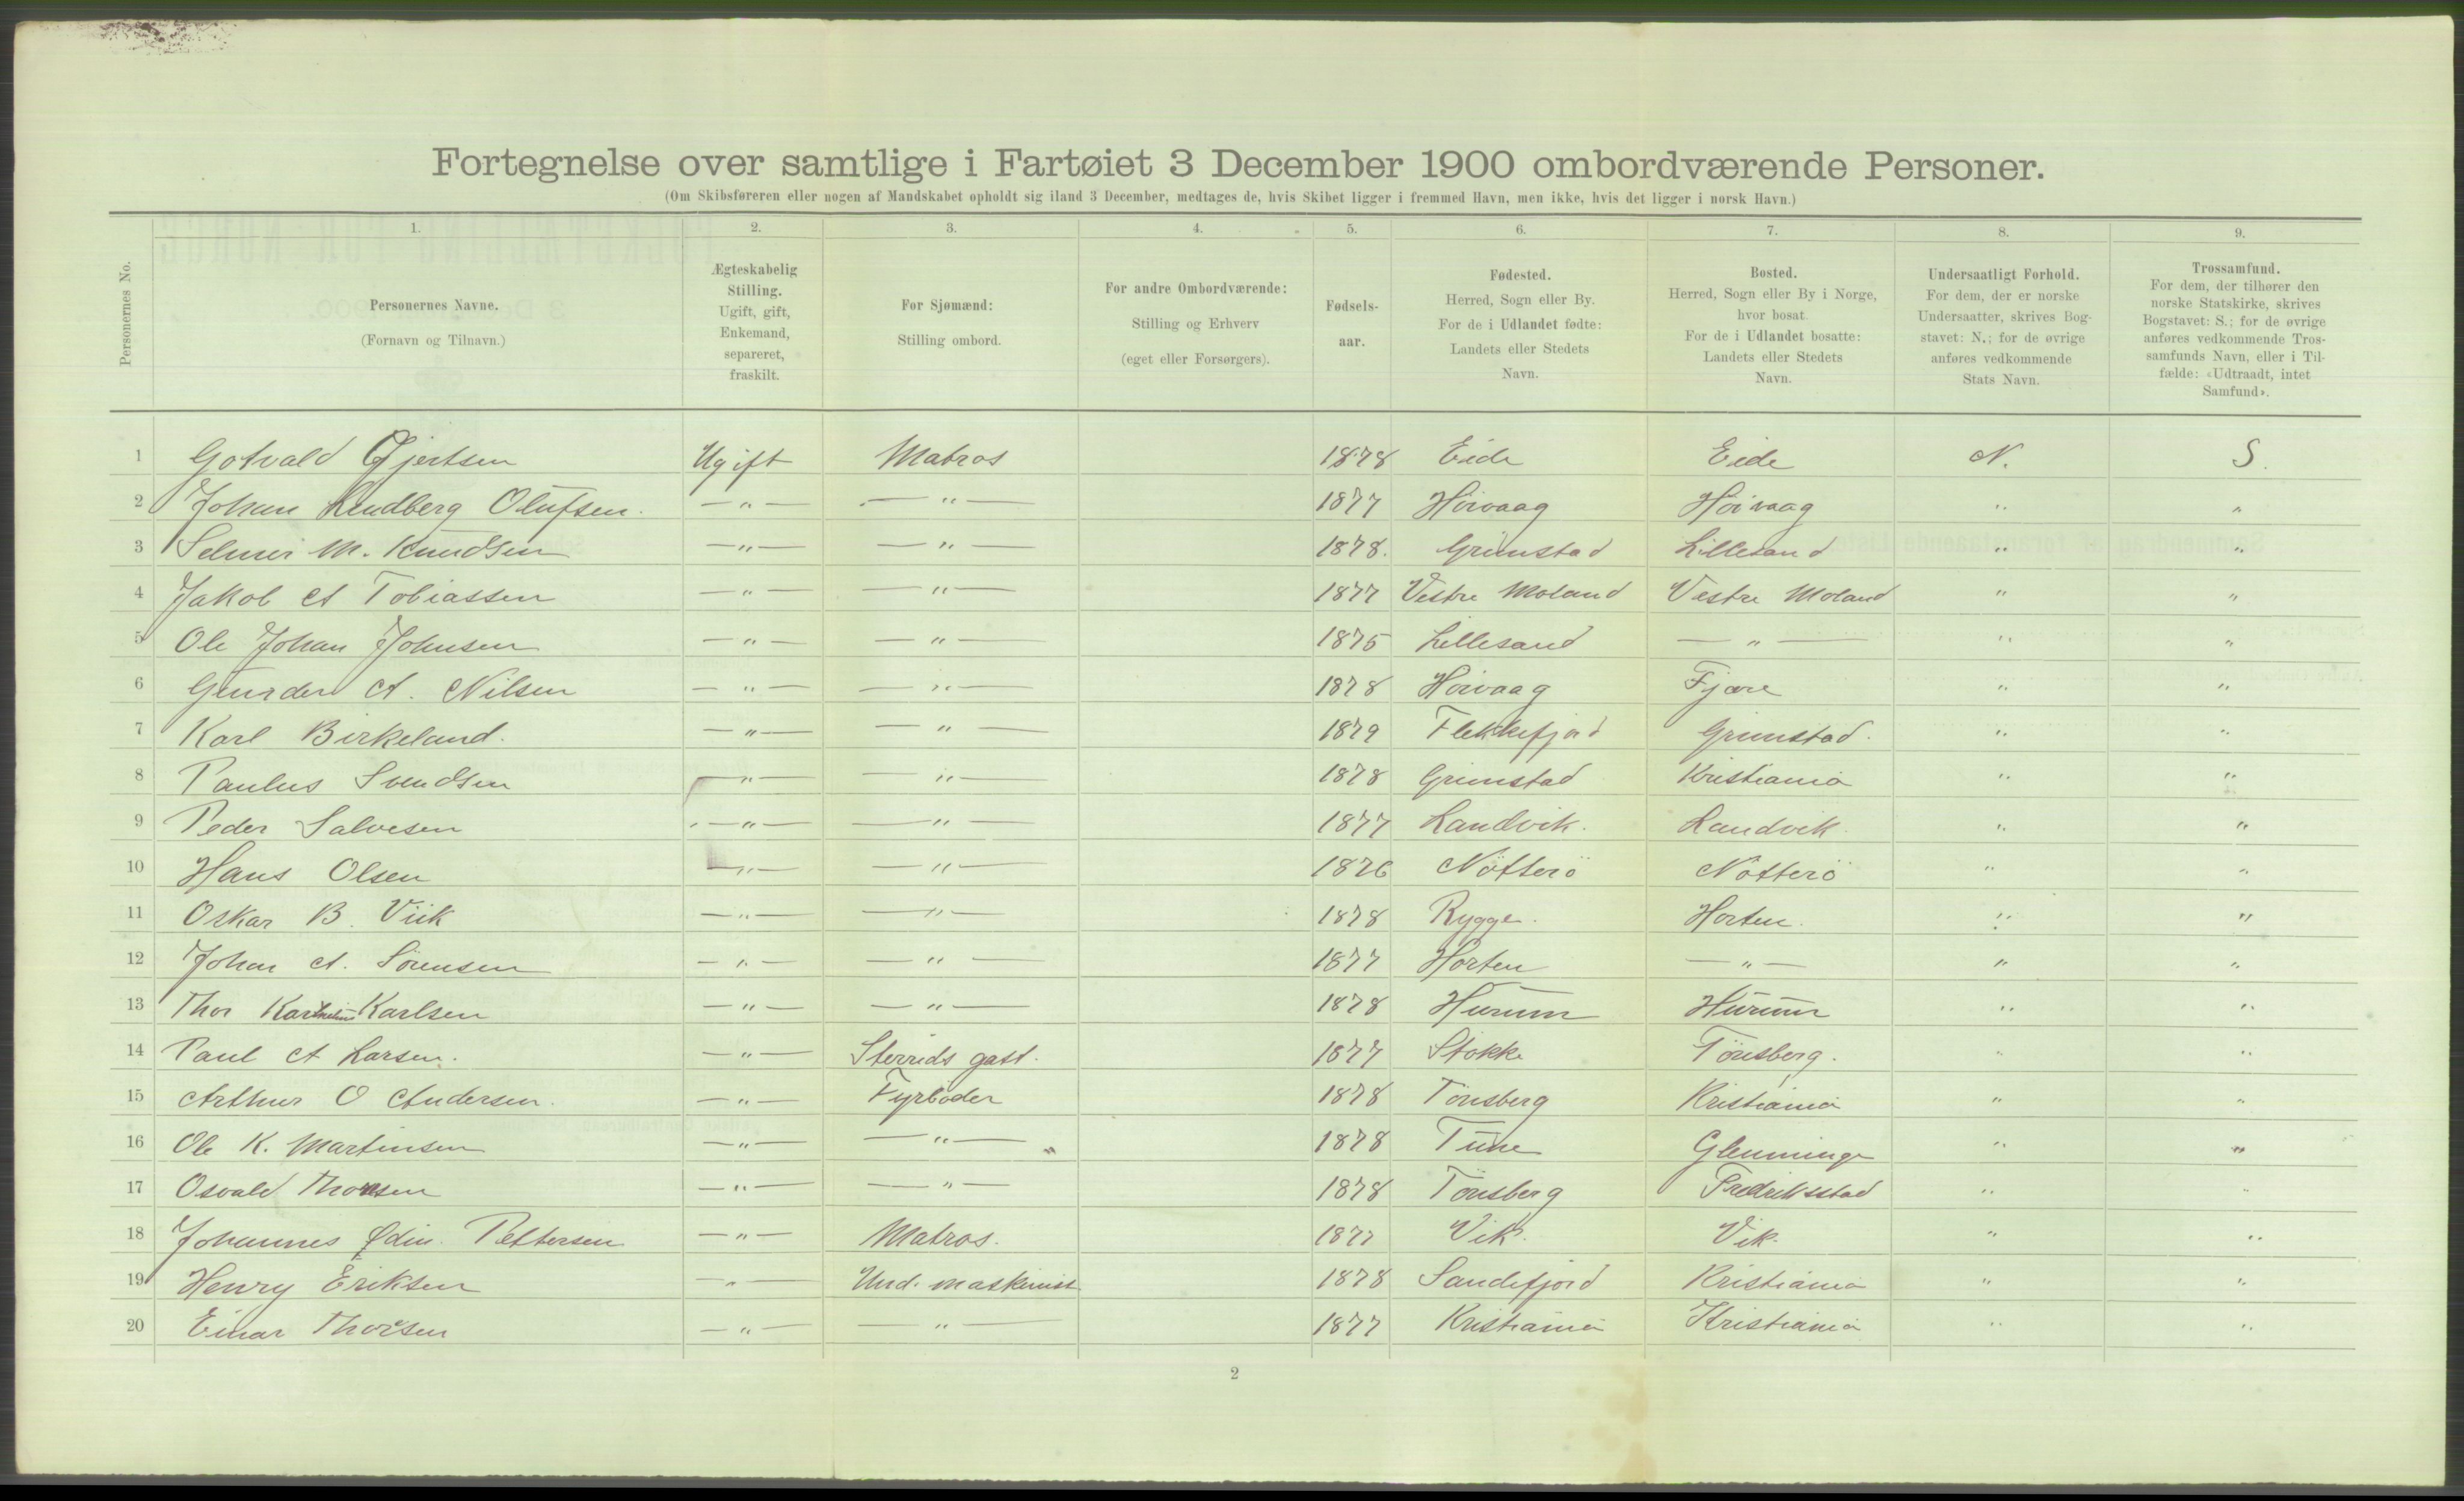 Fortegnelse over samtlige i Fartøiet 3 December 1900 ombordværende Personer.
(Om Skibsføreren eller nogen af Mandskabet opholdt sig iland 3 December, medtages de, hvis Skibet ligger i fremmed Havn, men ikke, hvis det ligger i norsk Havn.)
Personernes No.
1. 2. 3. 4. 5. 6. 7. 8. 9.
Personernes Navne.
(Fornavn og Tilnavn.)
Ægteskabelig
Stilling.
Ugift, gift,
Enkemand,
separeret,
fraskilt.
For Sjømænd:
Stilling ombord.
For andre Ombordværende:
Stilling og Erhverv
(eget eller Forsørgers).
Fødsels-
aar.
Fødested.
Herred, Sogn eller By.
For de i Udlandet fødte:
Landets eller Stedets
Navn.
Bosted.
Herred, Sogn eller By i Norge,
hvor bosat.
For de i Udlandet bosatte:
Landets eller Stedets
Navn.
Undersaatligt Forhold.
For dem, der er norske
Undersaatter, skrives Bog-
stavet: N.; for de øvrige
anføres vedkommende
Stats Navn.
Trossamfund.
For dem, der tilhører den
norske Statskirke, skrives
Bogstavet: S.; for de øvrige
anføres vedkommende Tros-
samfunds Navn, eller i Til-
fælde: «Udtraadt, intet
Samfund».
1 Gotvald Gjertsen Ugift Matros 1878 Eide Eide N. S.
2 Johan Lindberg Olufsen. — " — — " — 1877 Høivaag Høivaag " "
3 Selmer M. Knudsen — " — — " — 1878. Grimstad Lillesand " "
4 Jakob A Tobiassen — " — — " — 1877 Vestre Moland Vestre Moland " "
5 Ole Johan Johnsen — " — — " — 1875 Lillesand — " — " "
6 A. Nilsen — " — — " — 1878 Høivaag Fjære " "
7 Karl Birkeland. — " — — " — 1879 Flekkefjord Grimstad. " "
8 Paulus Svendsen — " — — " — 1878 Grimstad Kristiania " "
9 Peder Salvesen — " — — " — 1877 Landvik. Landvik. " "
10 Hans Olsen — " — — " — 1876 Nötterö Nötterö " "
11 Oskar B. Viik — " — — " — 1878 Rygge. Horten. " "
12 Johan A. Sörensen — " — — " — 1877 Horten — " — " "
13 Thor Karlsen — " — — " — 1878 Hurum Hurum " "
14 Paul A Larsen. — " — gast. 1877 Stokke Tönsberg. " "
15 Arthur O Andersen. — " — Fyrböder 1878 Tönsberg Kristiania " "
16 Ole K. Martinsen — " — — " — " 1878 Tune Glemminge " "
17 Osvald Thorsen — " — — " — 1878 Tönsberg Fredriksstad " "
18 Johannes Ödin. Pettersen — " — Matros. 1877 Vik. Vik. " "
19 Henry Eriksen — " — Und. maskinist 1878 Sandefjord Kristiania " "
20 Einar Thorsen — " — — " — 1877 Kristiania Kristiania " "
2